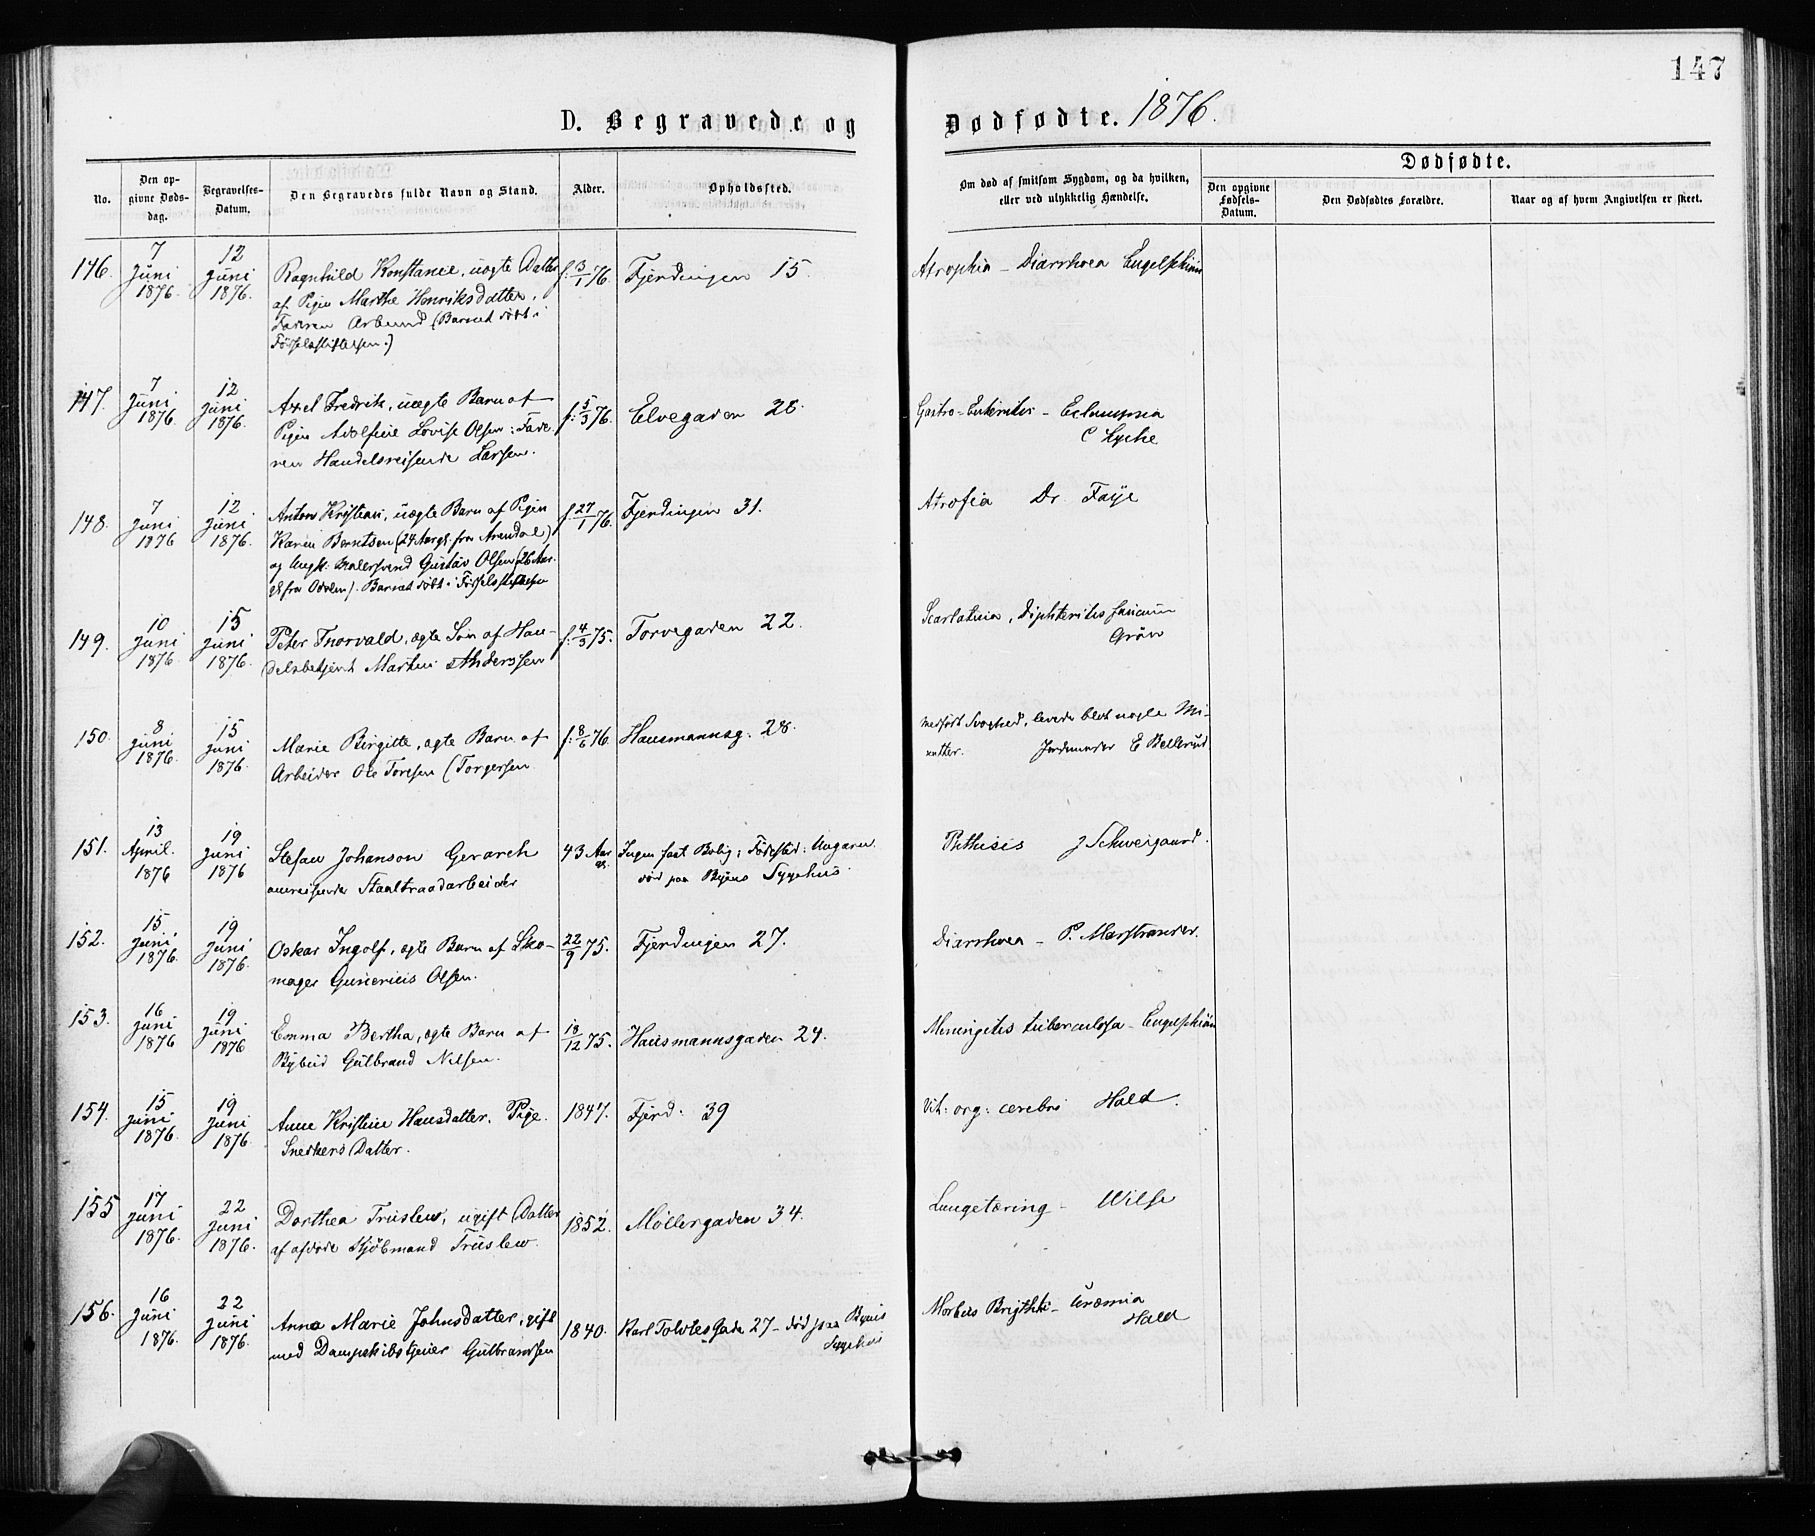 147
D. Begravede og Dødfødte. 1876.
No.
Den opgivne Dødsdag.
Begravelses-Datum.
Den Begravedes fulde Navn og Stand.
Alder.
Opholdssted.
Om død af smitsom Sygdom, og da hvilken, eller ved ulykkelig Hændelse.
Dødfødte.
Den opgivne Fødsels-Datum.
Den Dødfødtes Forældre.
Naar og af hvem Angivelsen er skeet.
146. 7 Juni 1876. 12 Juni 1876. Ragnhild Konstance, uægte Datter f. 3/1 76. Fjerdingen 15. Atrophia - Diarrhoea Engelskiøn
af Pigen Marthe Henriksdatter,
Faderen (Barnet født i
Fødselsstiftelsen.)
147. 7 Juni 1876. 12 Juni 1876. Axel Fredrik, uægte Barn af f: 5/3 76. Elvegaden 28. Gastro-Enteritis - Eclampsia
Pigen Adolfine Lovise Olsen: Fade- C Lyche
ren Handelsreisende Larsen.
148. 7 Juni 1876 12 Juni 1876. Anton Kristian, uægte Barn af Pigen f. 27/1 76. Fjerdingen 31. Atrofia Dr. Faye
Karen Berntsen (24 Aar gl. fra Arendal)
og Ungk. Malersvend Gustav Olsen (26 Aar
gl fra Odalen). Barnet født i Fødselsstiftelsen
149. 10 Juni 1876. 15 Juni 1876. Peter Thorvald, ægte Søn af Han- f. 4/3 75. Torvegaden 22. Scarlatina, Diphteritis faucium
delsbetjent Martin Anderssen Grøn
150. 8 Juni 1876. 15 Juni 1876. Marie Birgitte, ægte Barn af f. 8/6 76. Hausmannsg. 28. Medfødt Svaghed, levede blot nogle Mi-
Arbeider Ole Toresen (Torgersen nutter. Jordemoder E Bellerud.
151. 13 April. 1876 19 Juni 1876 Stefan Johanson Gerarch 43 Aar gl. Ingen fast Bolig; Fødested: Ungarn. Phthisis J Schweigaard.
omreisende Staaltraadarbeider død paa Byens Sygehus.
152. 15 Juni 1876. 19 Juni 1876. Oskar Ingolf, ægte Barn af Sko- 22/9 75. Fjerdingen 27. Diarrhoea - P. Marstrander.
mager Gunerius Olsen.
153. 16 Juni 1876 19 Juni 1876 Emma Bertha, ægte Barn af 18/12 75. Hausmannsgaden 24. Meningitis tuberculosa - Engelskiøn
Bybud Gulbrand Nilsen.
154. 15 Juni 1876. 19 Juni 1876. Anne Kristine Hansdatter. Pige. 1847. Fjerd: 39 Vit: org: cerebri Hald.
Snedkers Datter.
155 17 Juni 1876. 22 Juni 1876. Dorthea Truslew, ugift Datter 1852. Møllergaden 34. Lungetæring - Wilse
af afdøde Kjøbmand Truslew.
156. 16 Juni 1876. 22 Juni 1876. Anna Marie Johnsdatter, gift 1840. Karl Tolvtes Gade 27 - død paa Byens Sygehus Morbus Brigthii - Uræmia
med Dampskibstjener Gulbrandsen Hald